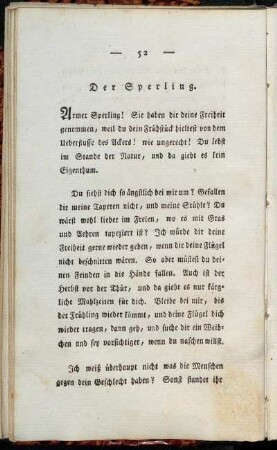 — 52 —
Der Sperling.
Armer Sperling! Sie haben dir deine Freiheit
genommen, weil du dein Frühstück hieltest von dem
Ueberflusse des Ackers! wie ungerecht! Du lebst
im Stande der Natur, und da giebt es kein
Eigenthum.
Du siehst dich so ängstlich bei mir um? Gefallen
dir meine Tapeten nicht, und meine Stühle? Du
wärst wohl lieber im Freien, wo es mit Gras
und Aehren tapeziert ist? Ich würde dir deine
Freiheit gerne wieder geben, wenn dir deine Flügel
nicht beschnitten wären. So aber müßtest du dei-
nen Feinden in die Hände fallen. Auch ist der
Herbst vor der Thür, und da giebt es nur kärg-
liche Mahlzeiten für dich. Bleibe bei mir, bis
der Frühling wieder kömmt, und deine Flügel dich
wieder tragen, dann geh, und suche dir ein Weib-
chen und sey vorsichtiger, wenn du naschen willst.
Ich weiß überhaupt nicht was die Menschen
gegen dein Geschlecht haben? Sonst standet ihr